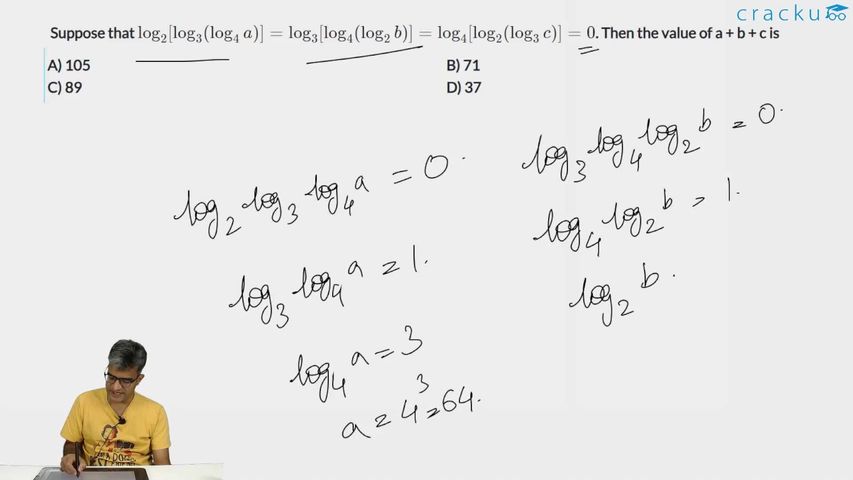 cracku
Suppose that log₂[log₃(log₄ a)] = log₃[log₄(log₂ b)] = log₄[log₂(log₃ c)] = 0. Then the value of a + b + c is
A) 105
B) 71
C) 89
D) 37
log₂ log₃ log₄ a = 0.
log₃ log₄ a = 1.
log₄ a = 3
a = 4³ = 64.
log₃ log₄ log₂ b = 0.
log₄ log₂ b = 1.
log₂ b.